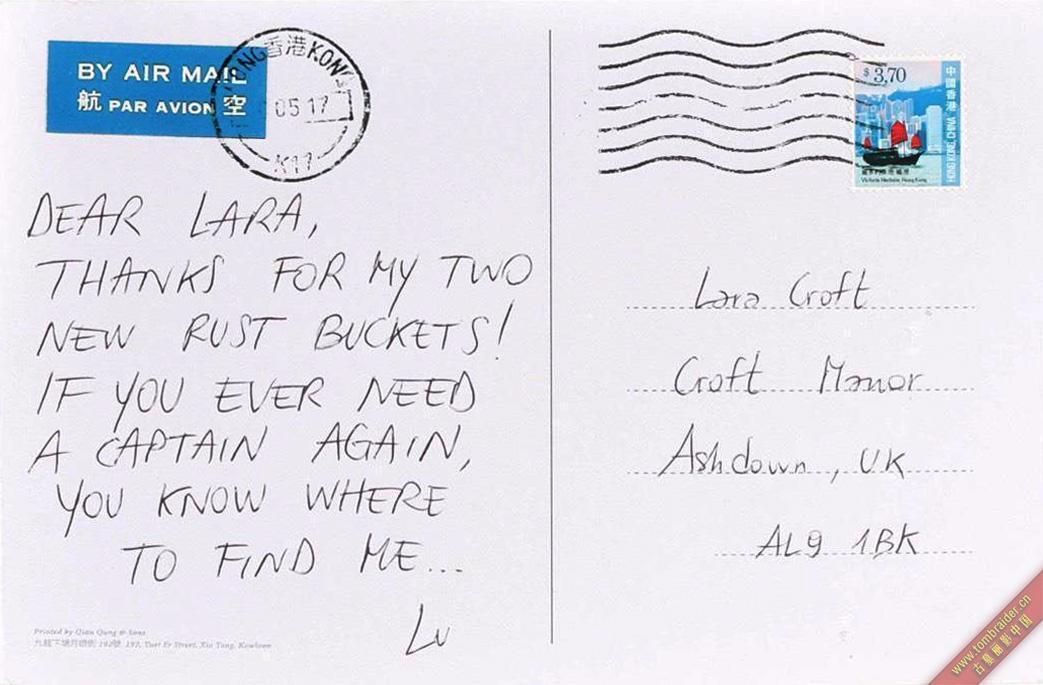 BY AIR MAIL
航 PAR AVION 空
香港KONG
05 17
K17
DEAR LARA,
THANKS FOR MY TWO
NEW RUST BUCKETS!
IF YOU EVER NEED
A CAPTAIN AGAIN,
YOU KNOW WHERE
TO FIND ME...
Lu
Printed by Qian Qung & Sons
192, Tuet Er Street, Xiu Tang, Kowloon
$ 3,70
中國香港
HONG KONG, CHINA
Victoria Harbour, Hong Kong
Lara Croft
Croft Manor
Ashdown, UK
AL9 1BK
www.tombraider.cn
古墓丽影中国